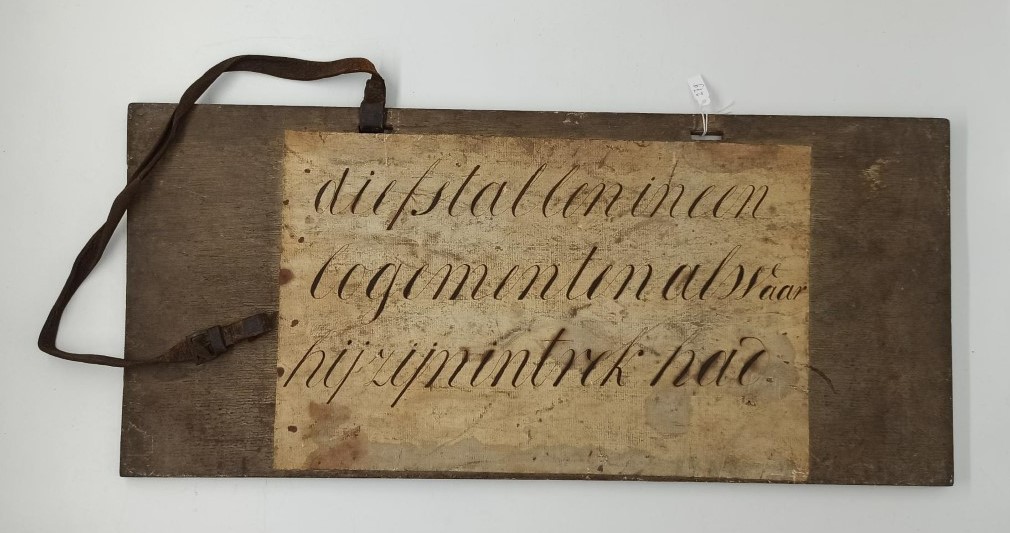 diefstallen in een
logementen als waar
hij zijn intrek had